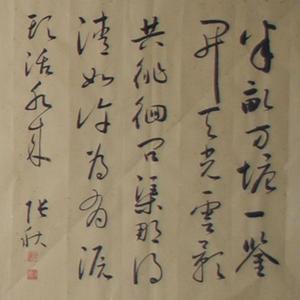 半畝方塘一鑒
開天光雲影
共徘徊問渠那得
清如許為有源
頭活水來
張秋